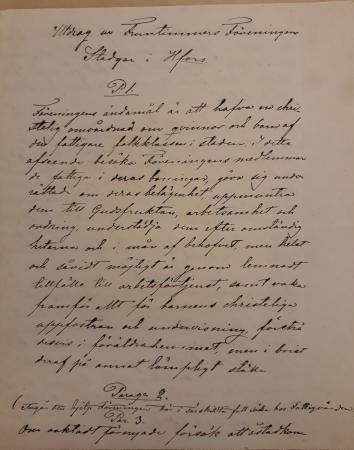 Utdrag ur Fruntimmers Föreningens
Stadgar i Hfors.
P. 1.
Föreningens ändamål är att hafva en chri-
stelig omvårdnad om qvinnor och barn af
den fattigare folkklassen i staden. I detta
afseende besöka Föreningens medlemmar
de fattiga i deras boningar, göra sig under
rättade om deras belägenhet, uppmuntra
dem till Gudsfruktan, arbetsamhet och
ordning, understödja dem efter omständig
heterna och i mån af behofvet men helst
och såvidt möjligt är genom lemnadt
tillfälle till arbetsförtjenst, samt vaka
framför allt för barnens christeliga
uppfostran och undervisning, företrä
desvis i föräldrahemmet, men i brist
deraf på annat lämpligt ställe.
Paragr 2.
den hjelp Föreningen i särskildta fall söka hos Fattigvården.
Par. 3.
Om oaktadt förnyade försök att åstadkom